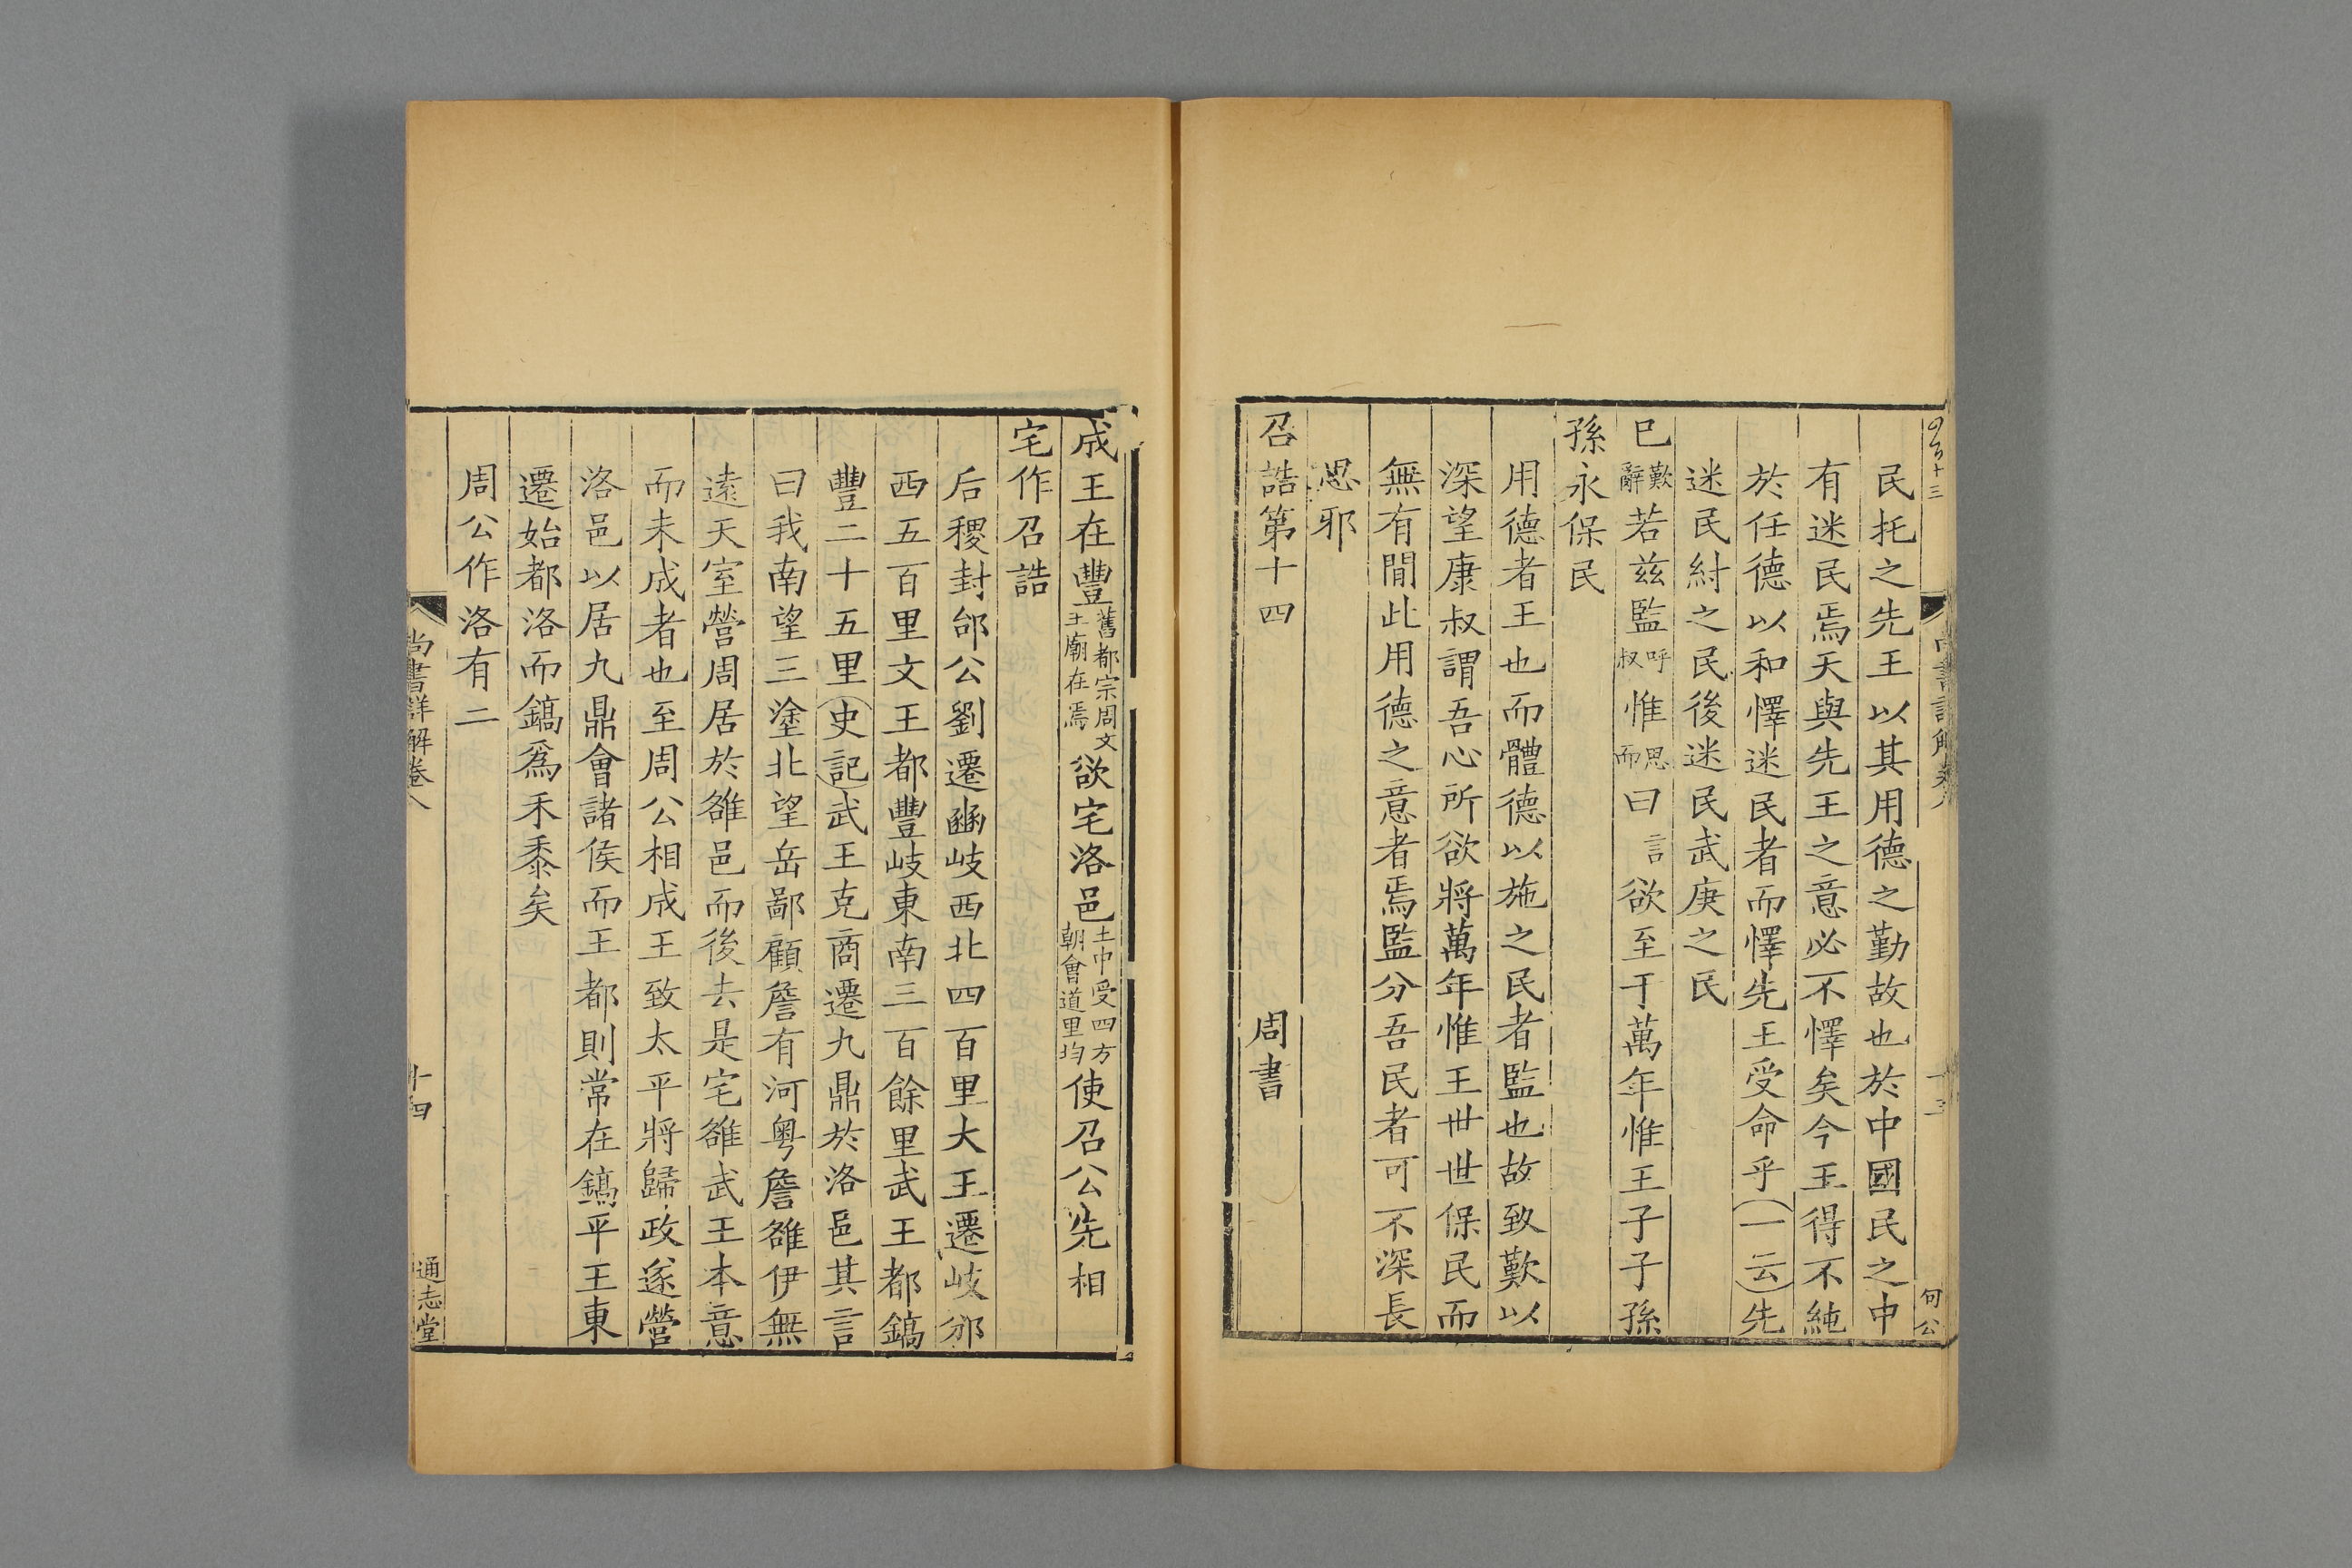 民托之先王以其用德之勤故也於中國民之中
有迷民焉天與先王之意必不懌矣今王得不純
於任德以和懌迷民者而懌先王受命乎一云先
迷民紂之民後迷民武庚之民
巳歎辭若茲監呼叔惟思而曰言欲至于萬年惟王子子孫
孫永保民
用德者王也而體德以施之民者監也故致歎以
深望康叔謂吾心所欲將萬年惟王世世保民而
無有間此用德之意者焉監分吾民者可不深長
思邪
召誥第十四 周書
成王在豐舊都宗周文王廟在焉欲宅洛邑土中受四方朝會道里均使召公先相
宅作召誥
后稷封邰公劉遷豳岐西北四百里大王遷岐邠
西五百里文王都豐岐東南三百餘里武王都鎬
豐二十五里史記武王克商遷九鼎於洛邑其言
曰我南望三塗北望岳鄙顧詹有河粵詹雒伊無
遠天室營周居於雒邑而後去是宅雒武王本意
而未成者也至周公相成王致太平將歸政遂營
洛邑以居九鼎會諸侯而王都則常在鎬平王東
遷始都洛而鎬爲禾黍矣
周公作洛有二
尚書詳解卷八 十四 通志堂